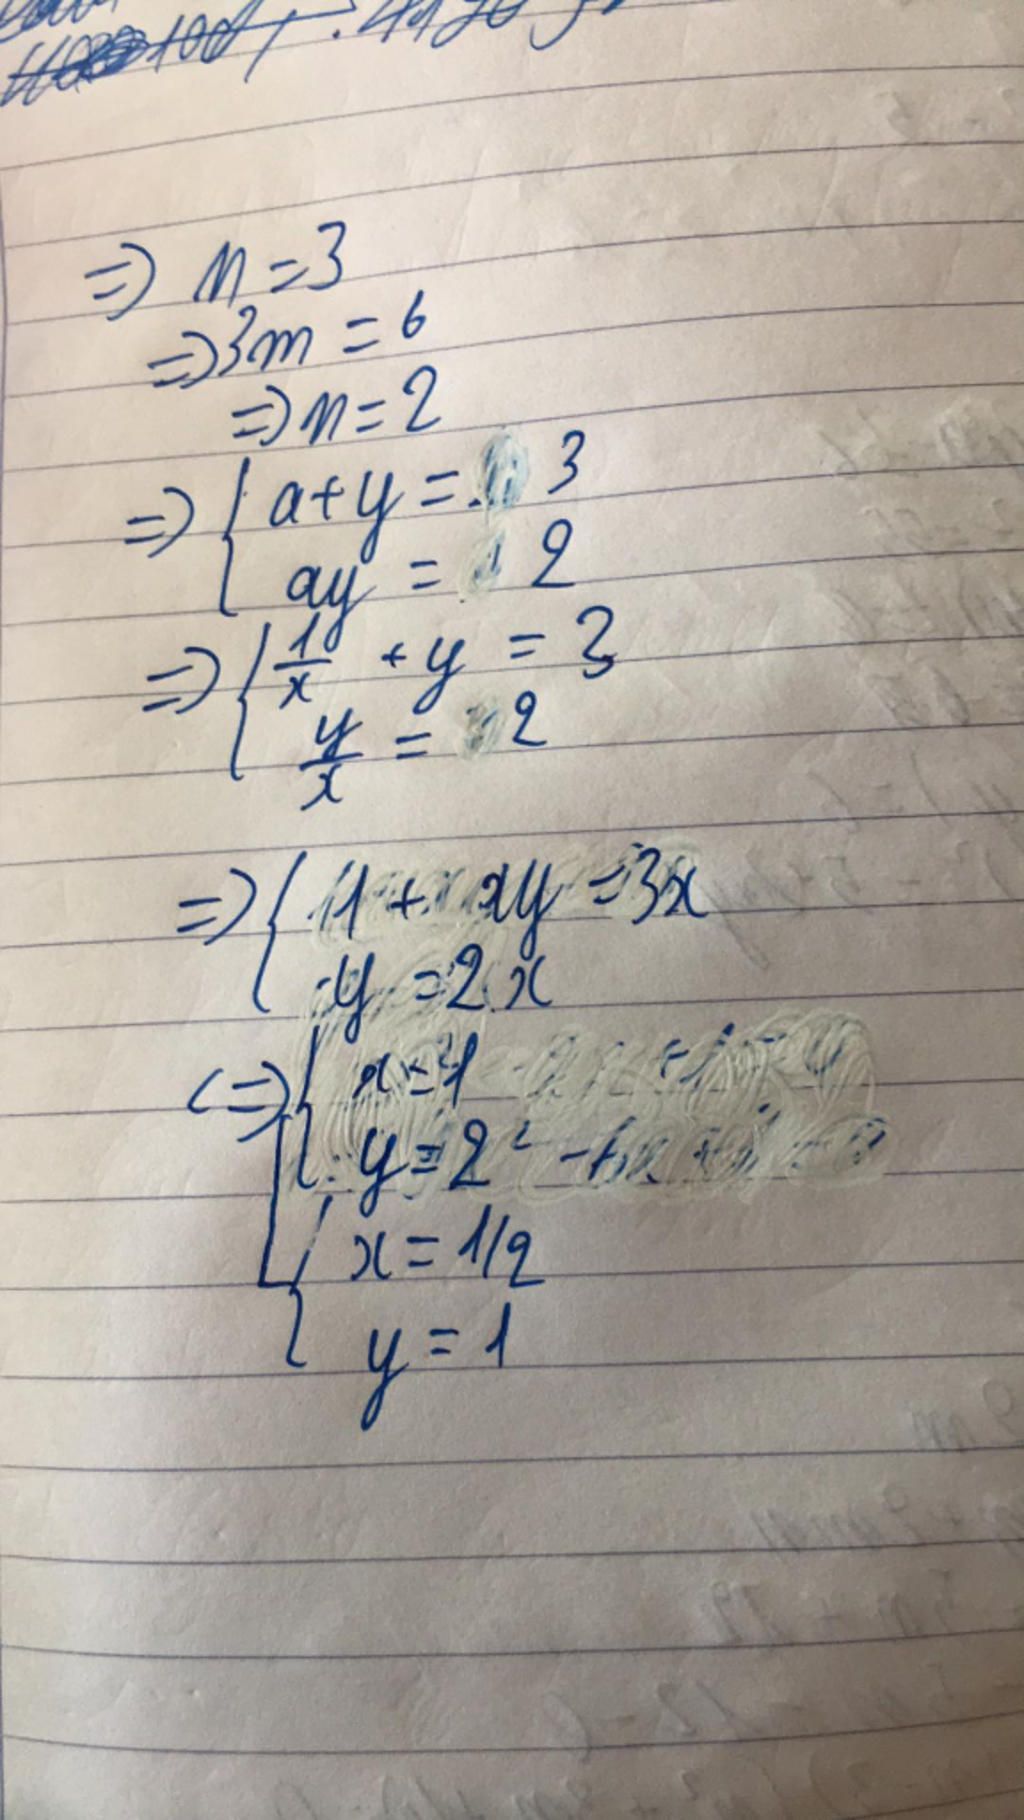 => n = 3
=> 3m = 6
=> n = 2
=> { a + y = 3
ay = 2
=> { 1/x + y = 3
y/x = 2
=> { 1 + xy = 3x
y = 2x
<=> [ { x = 1
y = 2
{ x = 1/2
y = 1